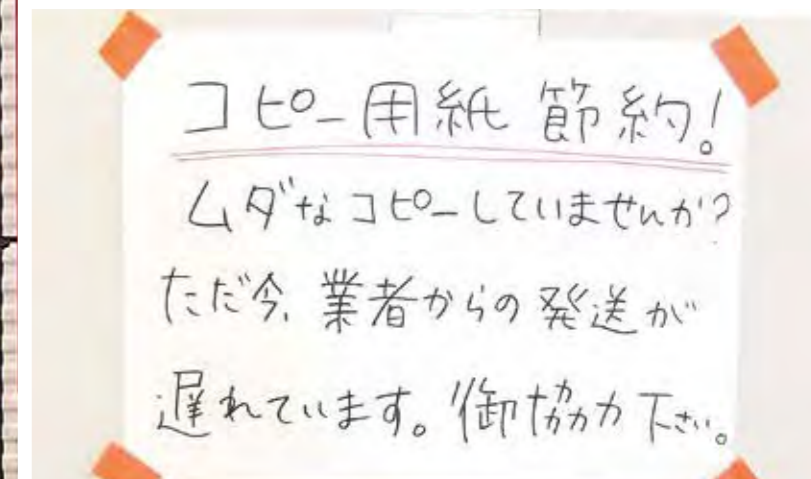 コピー用紙 節約!
ムダなコピーしていませんか?
ただ今、業者からの発送が
遅れています。御協力下さい。